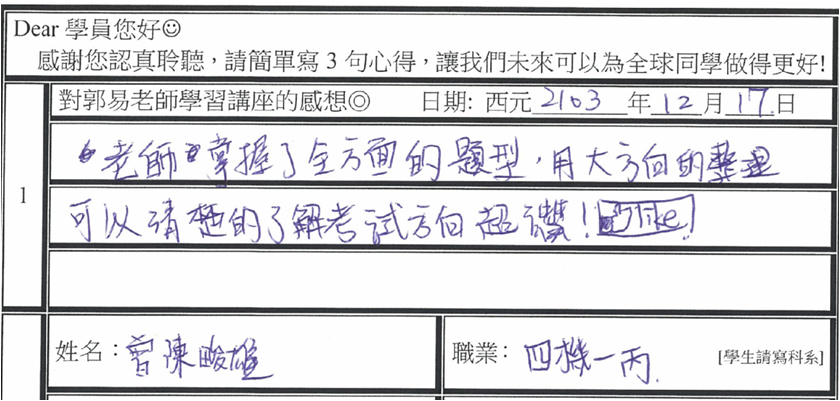 Dear 學員您好☺
感謝您認真聆聽，請簡單寫 3 句心得，讓我們未來可以為全球同學做得更好!
對郭易老師學習講座的感想◎ 日期: 西元 2103 年 12 月 17 日
1
老師掌握了全方面的題型，用大方向的整理
可以清楚的了解考試方向超讚！like!
姓名：曾陳畯雄
職業： 四機一丙. [學生請寫科系]